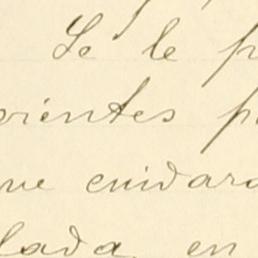 Se le p
rientes p
que cuidara
lada en